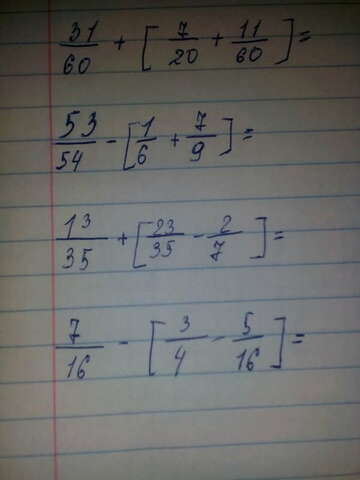 31/60 + [7/20 + 11/60] =
53/54 - [1/6 + 7/9] =
13/35 + [23/35 - 2/7] =
7/16 - [3/4 - 5/16] =